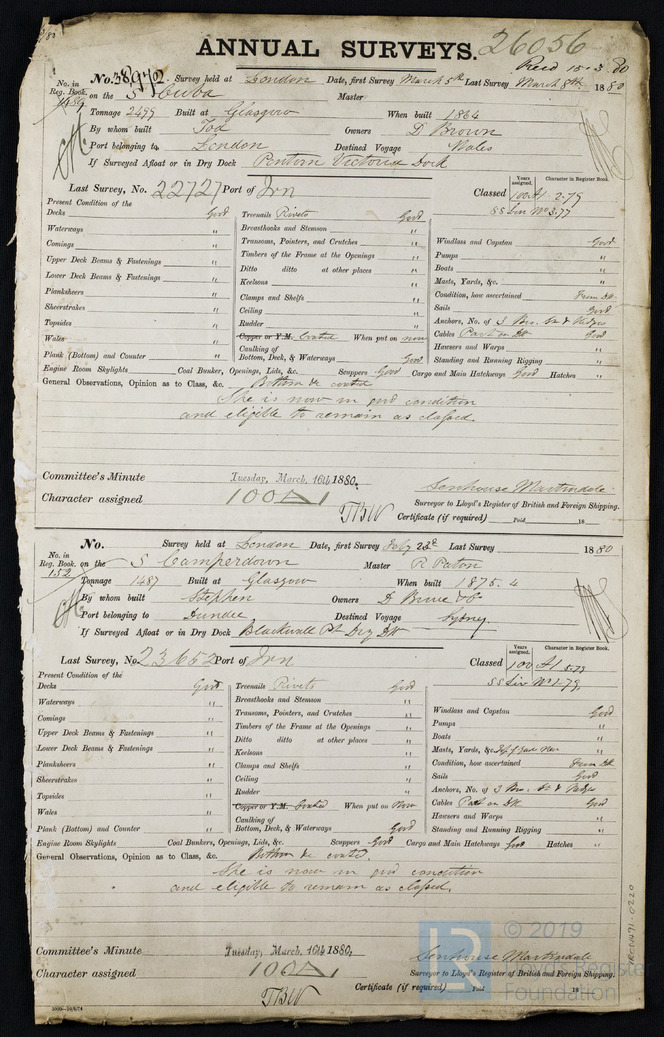 ANNUAL SURVEYS. 26056
Recd 15.3.80
No. 38972 Survey held at London Date, first Survey March 5th Last Survey March 8th 1880
No. in Reg. Book. on the S Cuba Master
Tonnage 2499 Built at Glasgow When built 1864
By whom built Tod Owners D Brown
Port belonging to London Destined Voyage Wales
If Surveyed Afloat or in Dry Dock Pontoon Victoria Dock
Last Survey, No. 22727 Port of Irn Classed Years assigned. 100 Character in Register Book. A1 2.79
SS Liv No 3.77
Present Condition of the
Decks Good Treenails Rivets Good
Waterways " Breasthooks and Stemson " Windlass and Capstan Good
Comings " Transoms, Pointers, and Crutches " Pumps "
Upper Deck Beams & Fastenings " Timbers of the Frame at the Openings " Boats "
Lower Deck Beams & Fastenings " Ditto ditto at other places " Masts, Yards, &c. "
Planksheers " Keelsons " Condition, how ascertained From Dk
Sheerstrakes " Clamps and Shelfs " Sails Good
Topsides " Ceiling " Anchors, No. of 3 Bro. St & Kedges
Wales " Rudder " Cables Part on Dk Good
Copper or Y.M. Coated When put on now Hawsers and Warps "
Plank (Bottom) and Counter " Caulking of Bottom, Deck, & Waterways Good Standing and Running Rigging "
Engine Room Skylights " Coal Bunker, Openings, Lids, &c. " Scuppers Good Cargo and Main Hatchways Good Hatches "
General Observations, Opinion as to Class, &c. Bottom &c coated
She is now in good condition
and eligible to remain as classed.
Committee's Minute Tuesday, March, 16th 1880.
Character assigned 100A1
Senhouse Martindale
Surveyor to Lloyd's Register of British and Foreign Shipping.
TBW Certificate (if required) Paid 18
No. Survey held at London Date, first Survey Feby 23d Last Survey 1880
No. in Reg. Book. 152 on the S Camperdown Master R Paton
Tonnage 1487 Built at Glasgow When built 1875.4
By whom built Stephen Owners D Bruce & Co
Port belonging to Dundee Destined Voyage Sydney
If Surveyed Afloat or in Dry Dock Blackwall Pt Dry Dk
Last Survey, No. 23652 Port of Irn Classed Years assigned. 100 Character in Register Book. A1
SS Liv No 1.79
Present Condition of the
Decks Good Treenails Rivets Good
Waterways " Breasthooks and Stemson " Windlass and Capstan Good
Comings " Transoms, Pointers, and Crutches " Pumps "
Upper Deck Beams & Fastenings " Timbers of the Frame at the Openings " Boats "
Lower Deck Beams & Fastenings " Ditto ditto at other places " Masts, Yards, &c.
Planksheers " Keelsons " Condition, how ascertained From Dk
Sheerstrakes " Clamps and Shelfs " Sails Good
Topsides " Ceiling " Anchors, No. of 3 Bro. St & Kedges
Wales " Rudder " Cables Part on Dk Good
Copper or Y.M. Coated When put on Now Hawsers and Warps "
Plank (Bottom) and Counter " Caulking of Bottom, Deck, & Waterways Good Standing and Running Rigging "
Engine Room Skylights " Coal Bunkers, Openings, Lids, &c. Scuppers Good Cargo and Main Hatchways Good Hatches "
General Observations, Opinion as to Class, &c. Bottom &c coated.
She is now in good condition
and eligible to remain as classed.
Committee's Minute Tuesday, March, 16th 1880.
Character assigned 100A1
Senhouse Martindale
Surveyor to Lloyd's Register of British and Foreign Shipping.
TBW Certificate (if required) Paid 18
© 2019
Lloyd's Register
Foundation